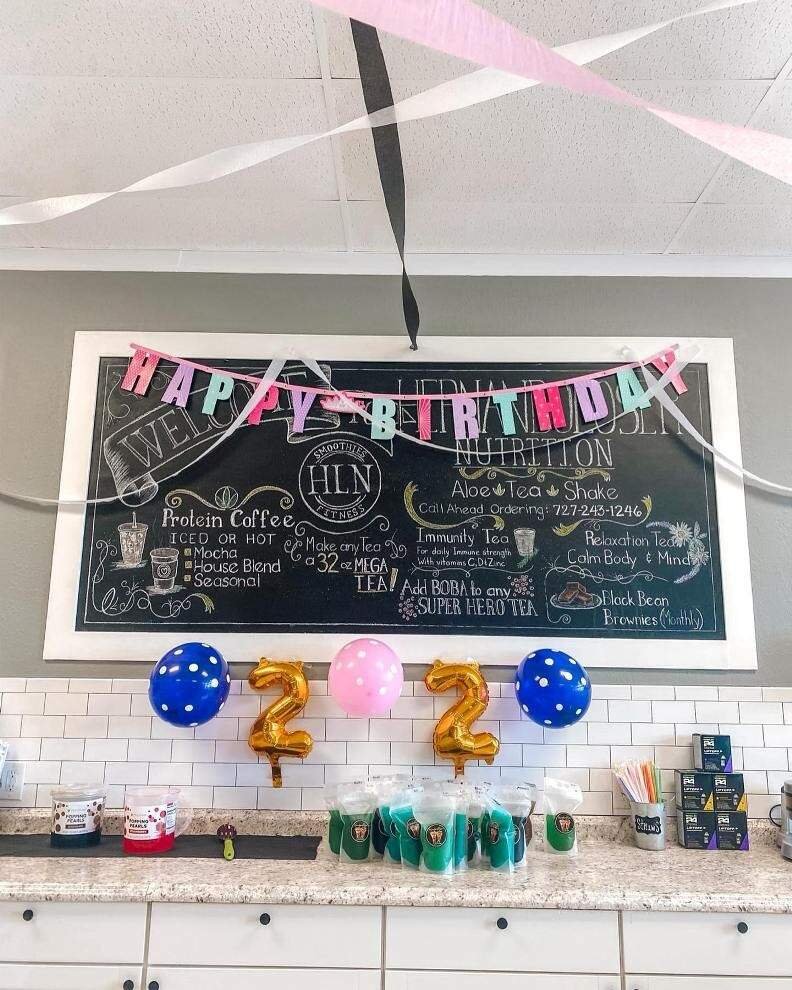 HAPPY BIRTHDAY
WELCOME
TO
NUTRITION
SMOOTHIES
HLN
FITNESS
Aloe Tea Shake
Call Ahead Ordering: 727-243-1246
Protein Coffee
ICED OR HOT
Mocha
House Blend
Seasonal
Make any Tea
a 32 oz MEGA
TEA!
Immunity Tea
For daily Immune strength
With vitamins C, D & Zinc
Add BOBA to any
SUPER HERO TEA
Relaxation Tea
Calm Body & Mind
Black Bean
Brownies (Monthly)
2 2
POPPING
PEARLS
POPPING
PEARLS
STRAWS
LIFTOFF
LIFTOFF
LIFTOFF
LIFTOFF